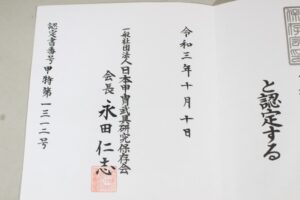 と認定する
令和三年十月十日
一般社団法人日本甲冑武具研究保存会
会長 永田仁志
認定書番号 甲特第一三一二号